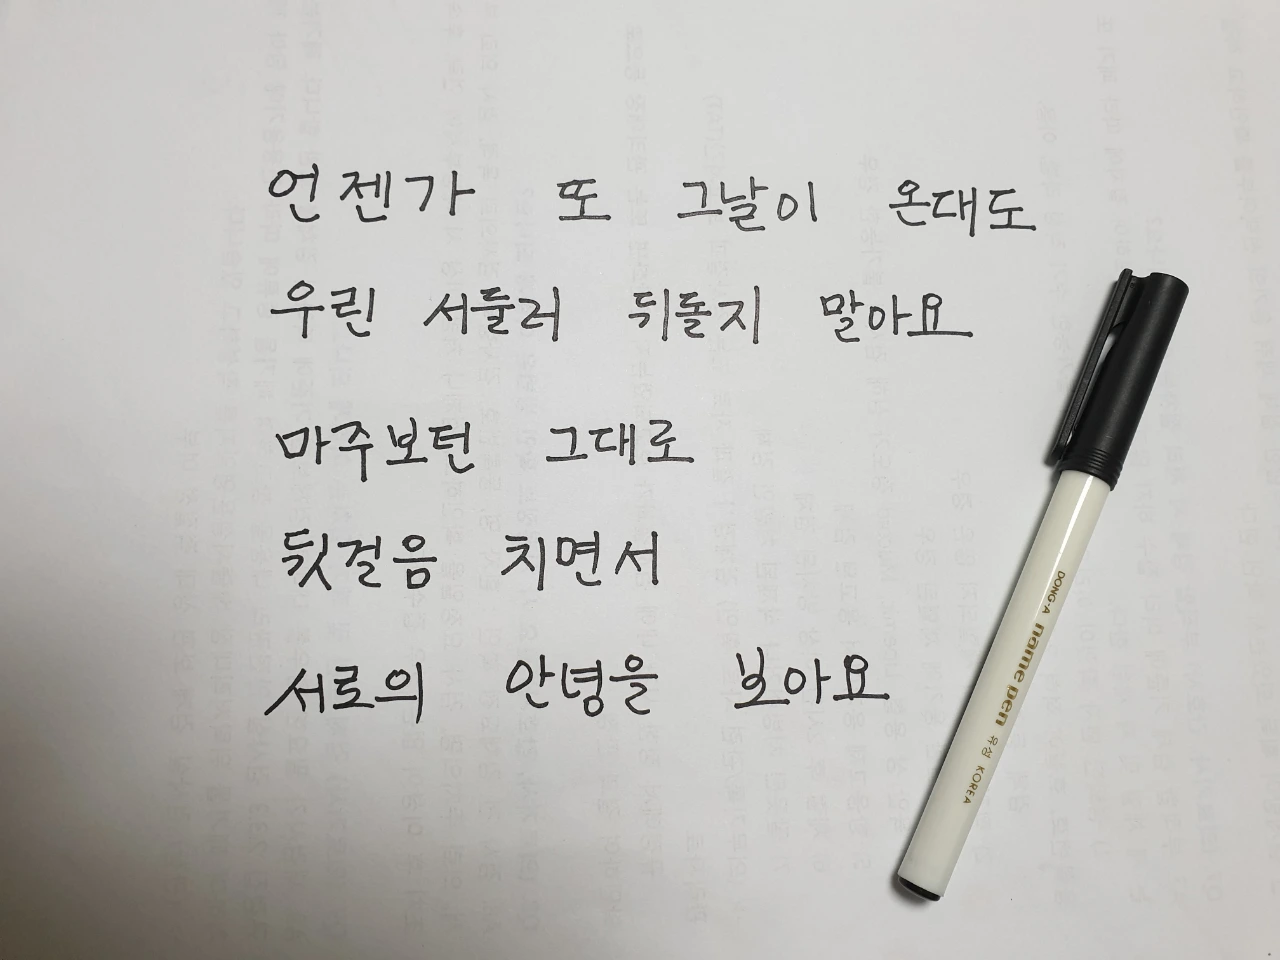 언젠가 또 그날이 온대도
우린 서둘러 뒤돌지 말아요
마주보던 그대로
뒷걸음 치면서
서로의 안녕을 보아요
DONG-A name pen 유성 KOREA